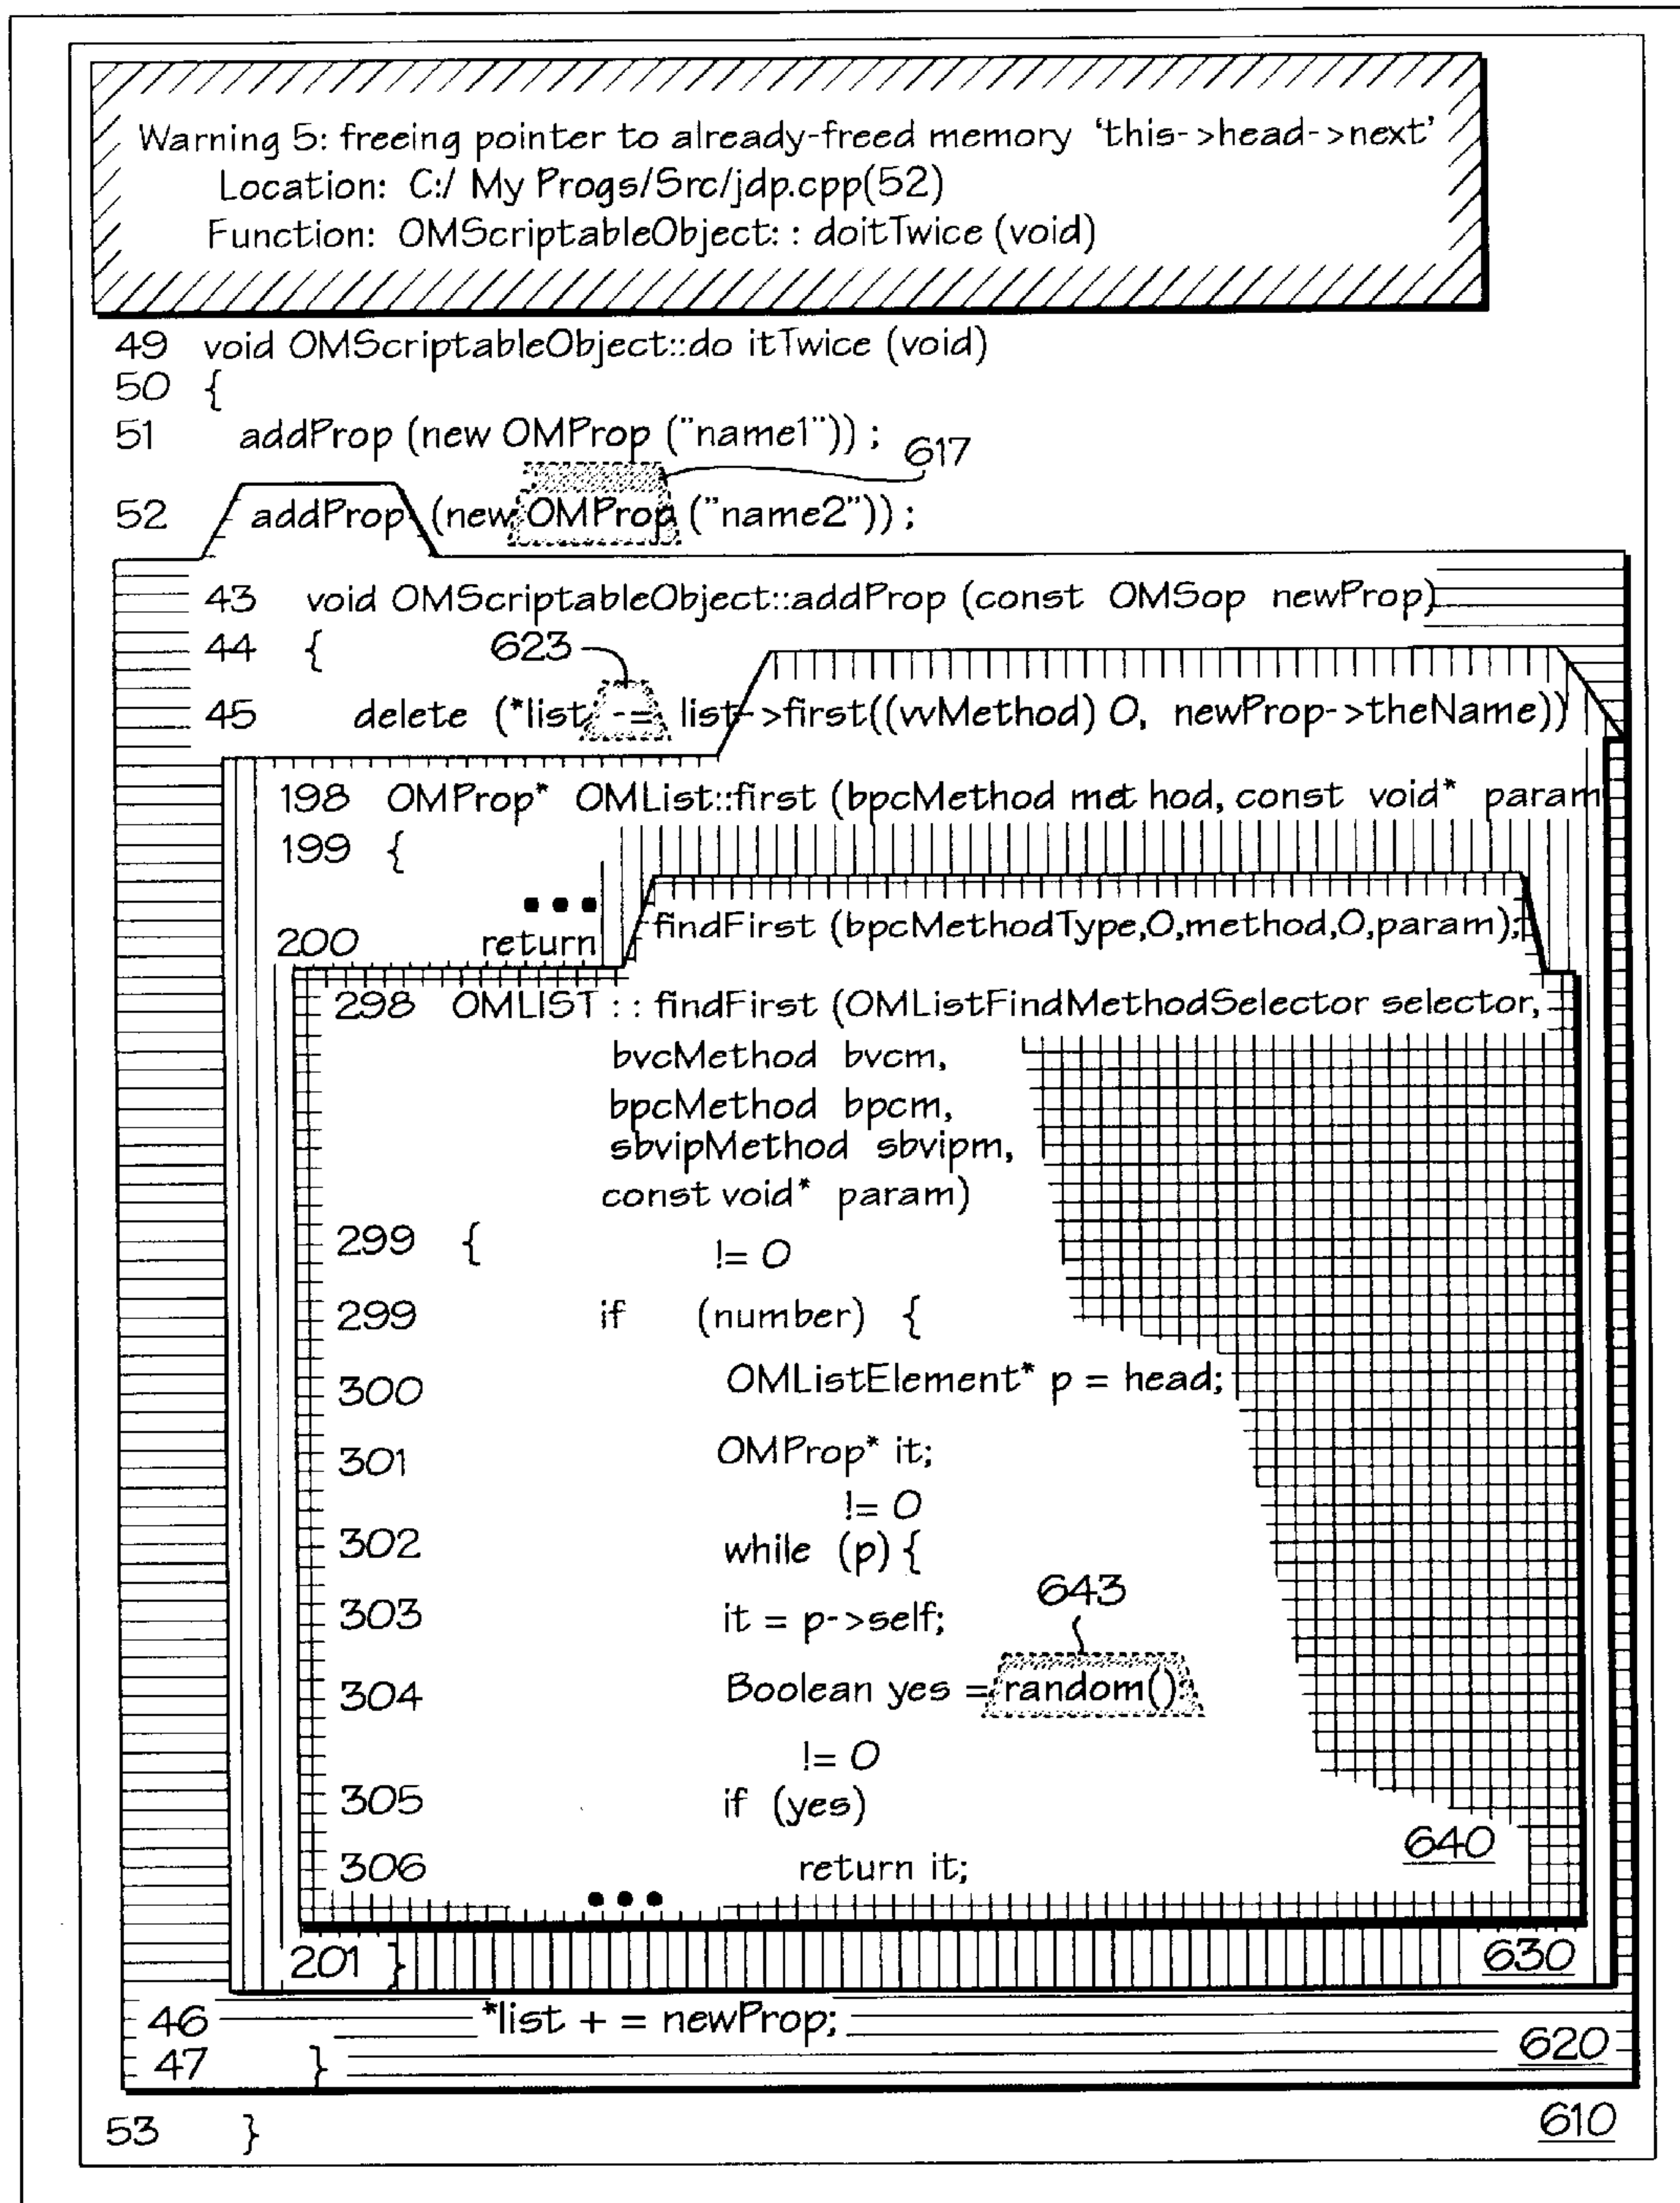 Warning 5: freeing pointer to already-freed memory 'this->head->next'
Location: C:/ My Progs/Src/jdp.cpp(52)
Function: OMScriptableObject: : doitTwice (void)
49 void OMScriptableObject::do itTwice (void)
50 {
51 addProp (new OMProp ("name1")) ;
617
52 addProp (new OMProp ("name2")) ;
43 void OMScriptableObject::addProp (const OMSop newProp)
44 {
623
45 delete (*list -= list->first((vvMethod) 0, newProp->theName))
198 OMProp* OMList::first (bpcMethod met hod, const void* param
199 {
•••
200 return findFirst (bpcMethodType,0,method,0,param);
298 OMLIST : : findFirst (OMListFindMethodSelector selector,
bvcMethod bvcm,
bpcMethod bpcm,
sbvipMethod sbvipm,
const void* param)
299 {
!= 0
299 if (number) {
300 OMListElement* p = head;
301 OMProp* it;
!= 0
302 while (p) {
643
303 it = p->self;
304 Boolean yes = random()
!= 0
305 if (yes)
640
306 return it;
•••
201 }
630
46 *list + = newProp;
620
47 }
610
53 }